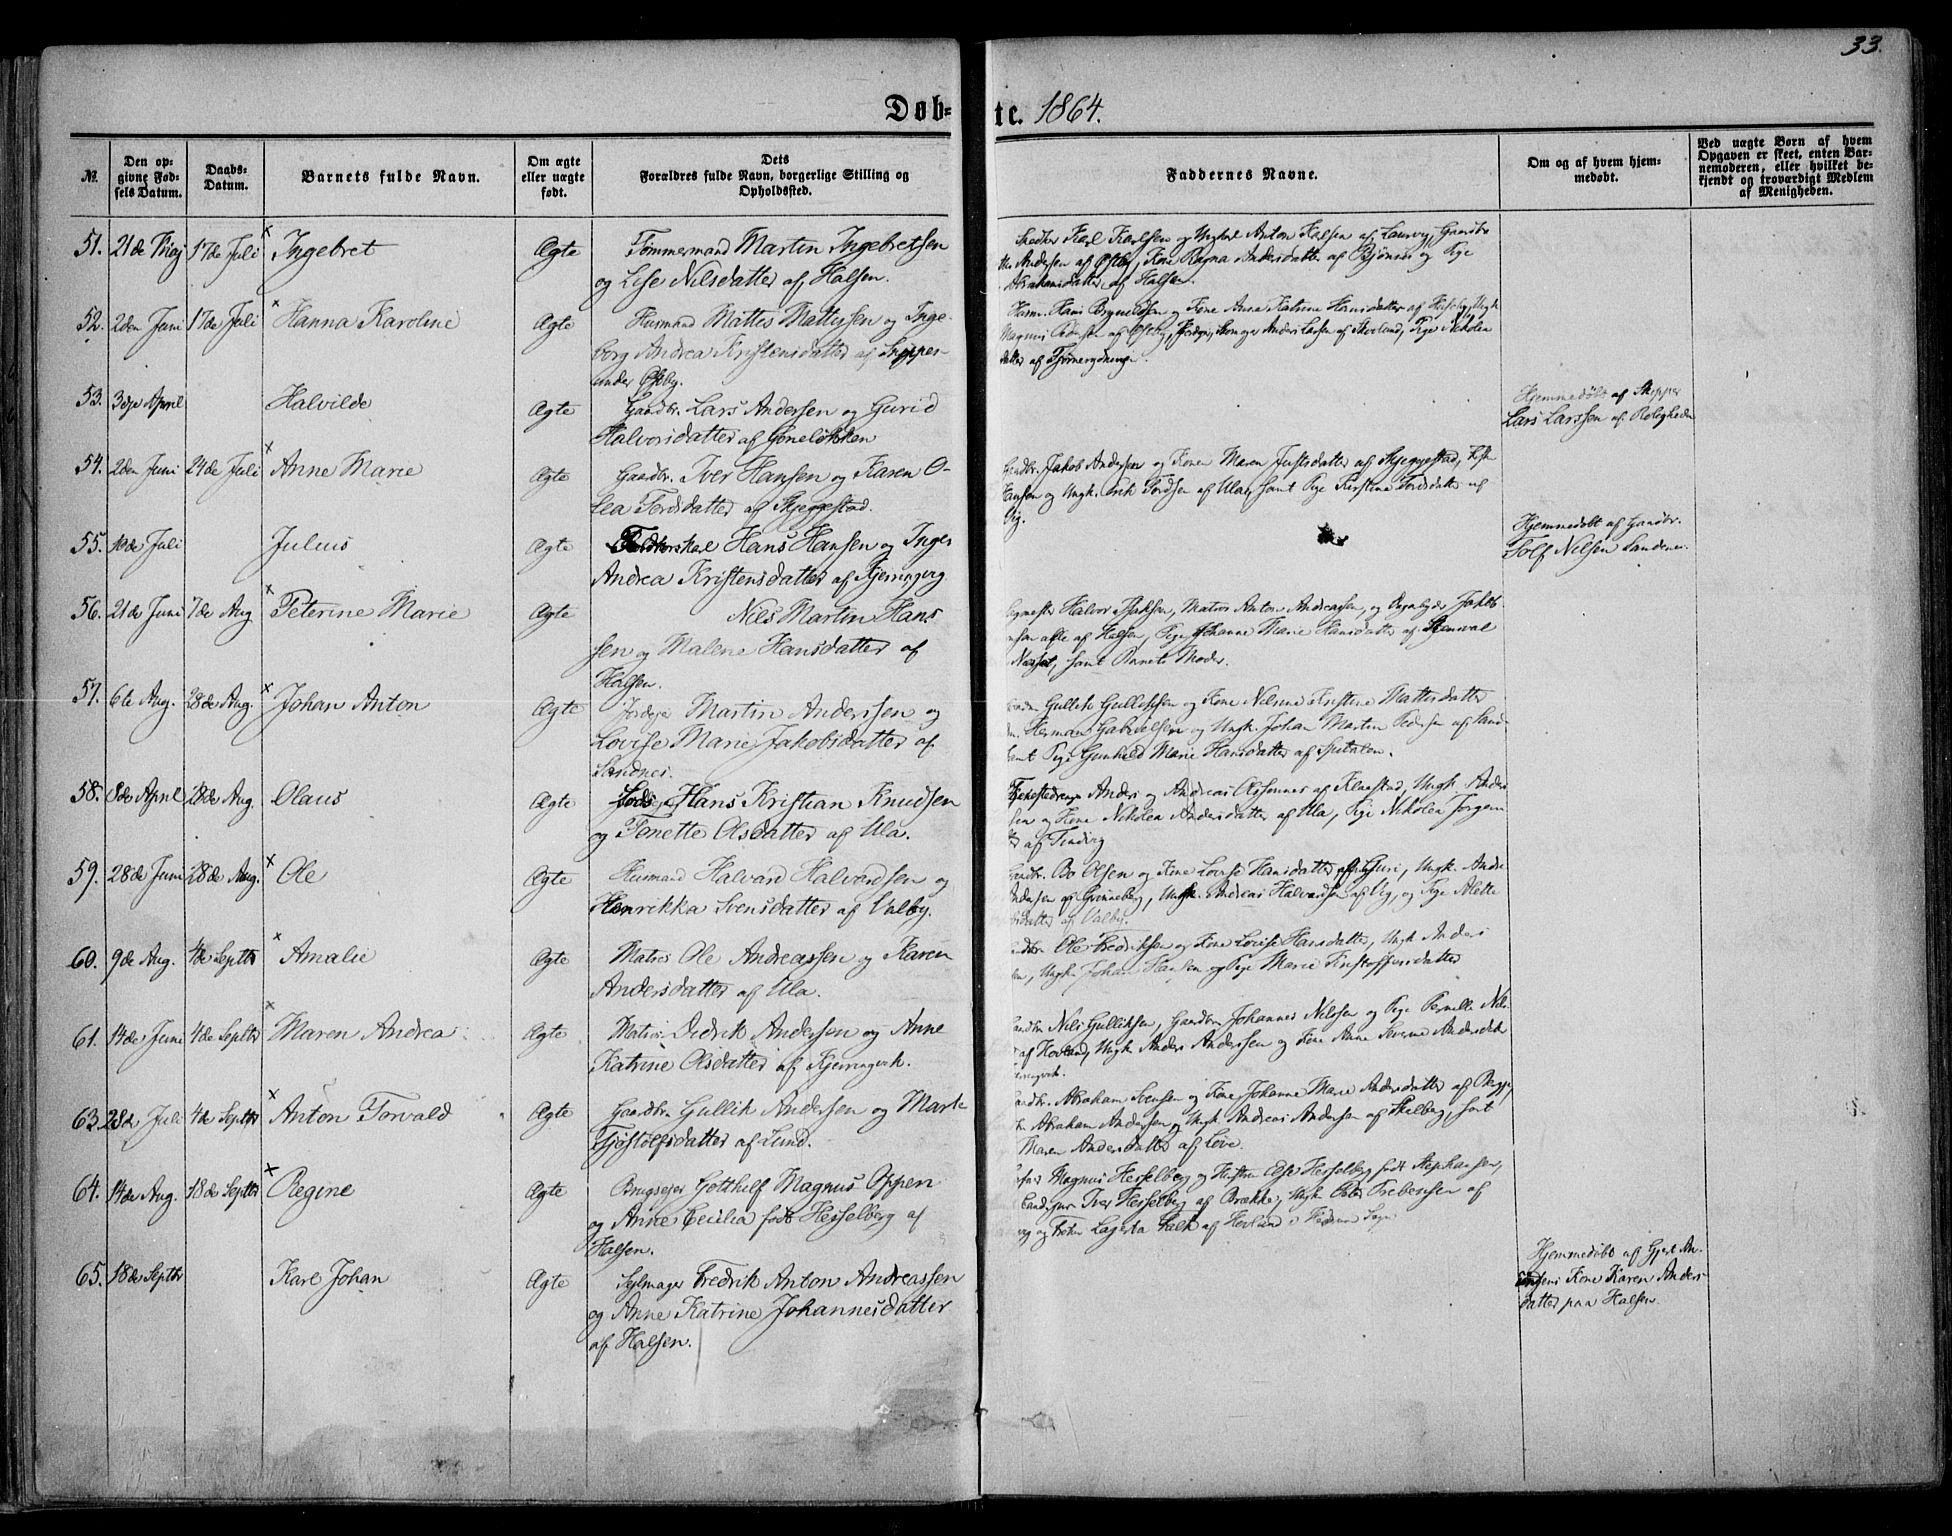 33.
Døb- te. 1864.
№. Den opgivne Fødsels Datum. Daabs-Datum. Barnets fulde Navn. Om ægte eller uægte født. Dets Forældres fulde Navn, borgerlige Stilling og Opholdssted. Faddernes Navne. Om og af hvem hjemmedøbt. Ved uægte Børn af hvem Opgaven er skeet, enten Barnemoderen, eller hvilket bekjendt og troværdigt Medlem af Menigheden.
51. 21de Maj 17de Juli Ingebret Ægte Tømmermand Martin Ingebretsen
og Lise Nilsdatter af Halsen.
Karl Karlsen og Ungkarl Anton Karlsen af Laurvig, Gaardbr.
Andersen af Østby, Kone Ragna Andersdatter af Bjønnes og Pige
Abrahamsdatter af Halsen.
52. 2den Juni 17de Juli Hanna Karoline Ægte Husmand Mattis Mattissen og Inge-
borg Andrea Kristensdatter af
under Østby.
Husm. Hans Bryneldsen og Kone Anne Katrine Hansdatter af
Magnus Pedersen af Østby, Anders Larsen af Skovlund, Pige Nikolea
datter af
53. 3die April Halvilde Ægte Gaardbr. Lars Andersen og Gurid
Halvorsdatter af Goneløkken
Hjemmedøbt af Skipper
Lars Larssen af Roligheden
54. 2den Juni 24de Juli Anne Marie Ægte Gaardbr. Iver Hansen og Karen O-
lea Tordsdatter af Skjeggestad.
Gaardbr. Jakob Andersen og Konen Maren Justsdatter af Skjeggestad,
Hansen og Ungk. Erik Tordsen af Ula, samt Pige Kirstine Tordsdatter af
Vig.
55. 10de Juli Julius Ægte Hans Hansen og Inger
Andrea Kristensdatter af Kjerringvig
Hjemmedøbt af Gaardbr.
Tolf Nilsen Sandenes.
56. 21de Juni 7de Aug Peterine Marie Ægte Nils Martin Hans
sen og Malene Hansdatter af
Halsen.
Halvor Isaksen, Matros Anton Andreassen, og Jakob
alle af Halsen, Pige Johanne Marie Hansdatter af
samt Barnets Moder.
57. 6te Aug. 28de Aug. Johan Anton Ægte Martin Anderssen og
Lovise Marie Jakobsdatter af
Sandnes.
Gullik Gulliksen og Kone Nilsine Kristine Mattisdatter
Herman Gabrielsen og Ungk. Johan Martin Pedersen af Sand-
samt Pige Gunhild Marie Hansdatter af Spetalen.
58. 8de April 28de Aug. Olaus Ægte Hans Kristian Knudsen
og Tonette Olsdatter af Ula.
Anders og Andreas Olssønner af Klavestad, Ungk. Anders
sen og Kone Nikolea Andersdatter af Ula, Pige Nikolea Jorgens
af Tindvig
59. 28de Juni 28de Aug. Ole Ægte Husmand Halvard Halvardsen og
Henrikka Svensdatter af Valby.
Gaardbr. Bo Olsen og Kone Lovise Hansdatter af Guri, Ungk.
Andersen af Grønneberg, Ungk. Andreas Halvardsen af Vig, og Pige Alette
datter af Valby.
60. 9de Aug. 4de Septbr Amalie Ægte Matros Ole Andreassen og Karen
Andersdatter af Ula.
Ole Fredriksen og Kone Lovise Hansdatter, Ungk Anders
sen, Ungk Johan Hansen og Pige Marie Kristoffersdatter
61. 14de Juni 4de Septbr Maren Andrea Ægte Matros Didrik Anderssen og Anne
Katrine Olsdatter af Kjerringvik.
Gaardbr Nils Gulliksen, Gaardbr Johannes Nilsen og Pige Pernille Nils-
af Hovland, Ungk. Anders Anderssen og Kone Anne Severine Andersdtr
63. 28de Juli 4de Septbr Anton Torvald Ægte Gaardbr Gullik Andersen og Marte
Tjøstolfsdatter af Lund.
Gaardbr. Abraham Svensen og Kone Johanne Marie Andersdatter af Berge,
Abraham Andersen og Ungk. Andreas Andersen af Skelbrg, samt
Maren Andersdatter af Løve.
64. 14de Aug. 18de Septbr Regine Ægte Brugsejer Gotthilf Magnus Oppen
og Anne Cecilia født Hesselberg af
Halsen.
Magnus Hesselberg og Hustru Else Hesselberg født Stephansen,
Cand. jur Iver Hesselberg af Brække, Ungk Peter Trebensen af
og Frøken Lagerta Falk af Hovland i Hedrum Sogn
65. 18de Septbr Karl Johan Ægte Sejlmager Fredrik Anton Andreassen
og Anne Katrine Johannesdatter
af Halsen.
Hjemmedøbt af Gjert An-
dersens Kone Karen Anders-
datter paa Halsen.